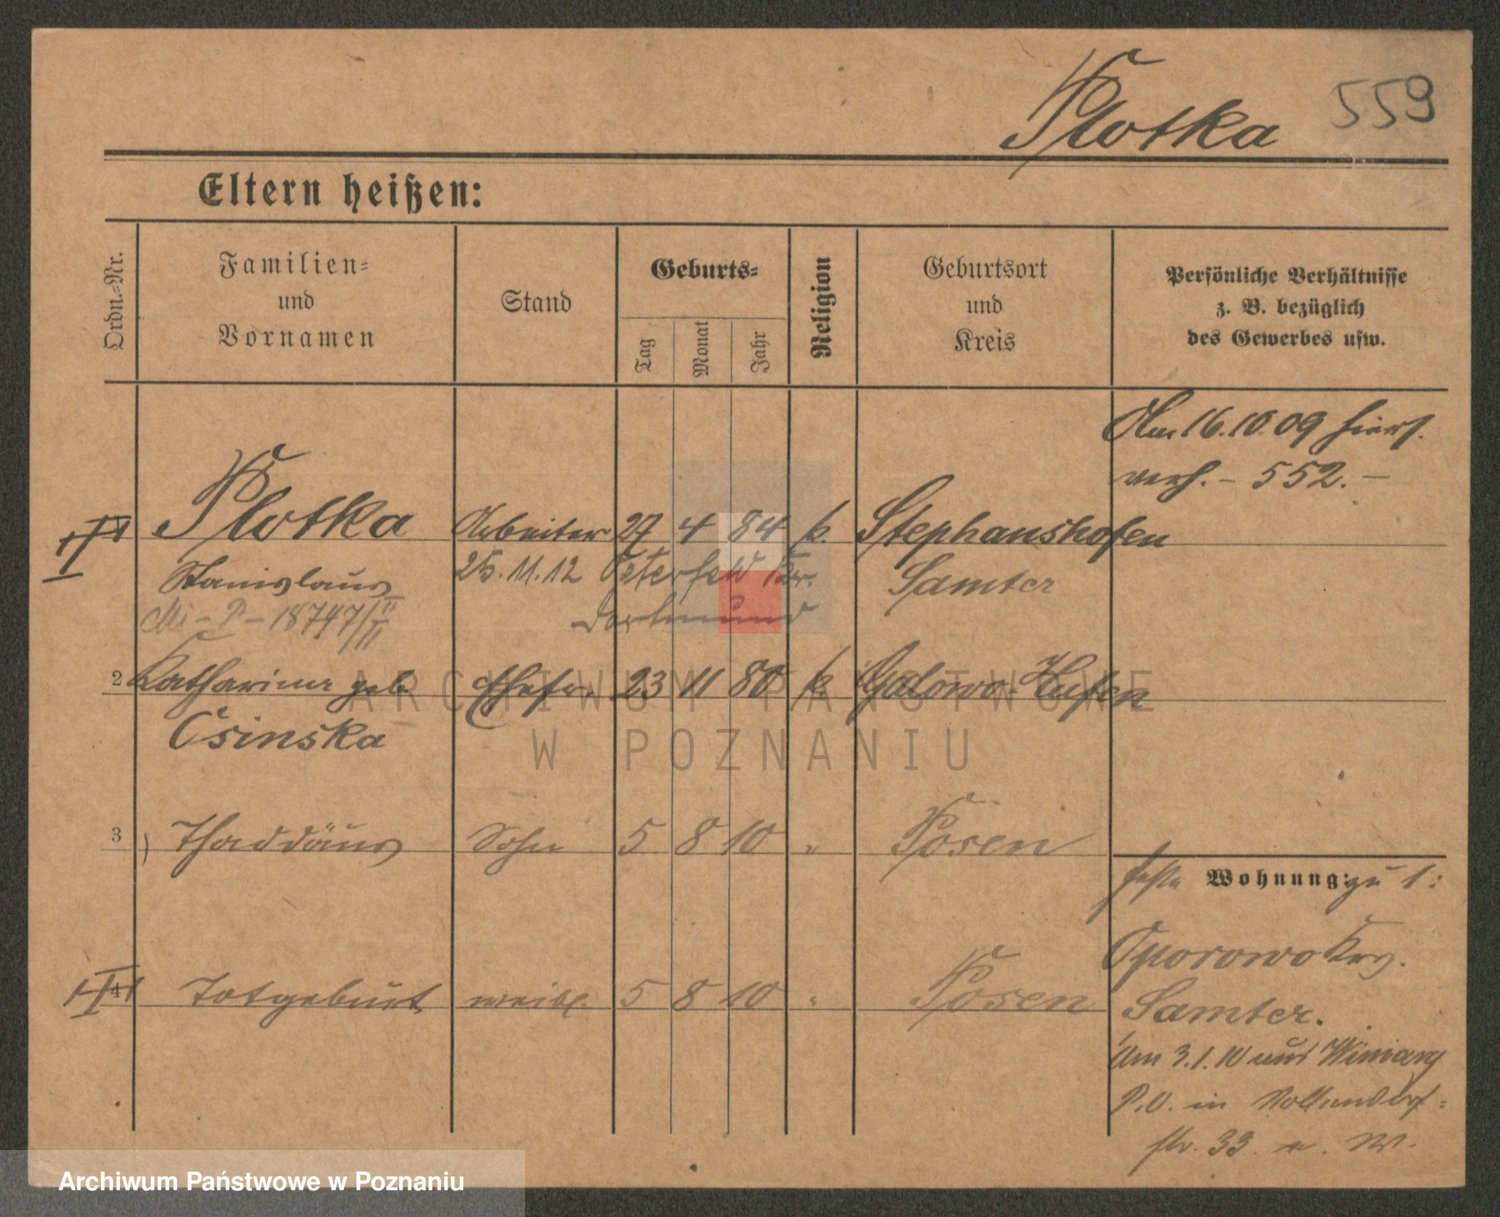 Plotka 559
Eltern heißen:
Ordn.-Nr.
Familien-
und
Vornamen
Stand
Geburts-
Tag
Monat
Jahr
Religion
Geburtsort
und
Kreis
Persönliche Verhältnisse
z. B. bezüglich
des Gewerbes usw.
Am 16.10.09 hiers.
verh. - 552. -
Plotka Arbeiter 27 4 84 k. Stephanshofen
Stanislaus 25.11.12 Kr. Samter
Mi - P - 18747/II
Dortmund
2 Katharina geb Ehefr. 23 11 80 k. Galowo-Hufen
Csinska
3 Thaddäus Sohn 5 8 10 " Posen
feste Wohnung: zu 1:
Oporowo Krs.
4 Totgeburt weibl. 5 8 10 " Posen
Samter.
Am 3.1.10 aus Winiary
P.O. in
str. 33
ARCHIWUM PAŃSTWOWE
W POZNANIU
Archiwum Państwowe w Poznaniu